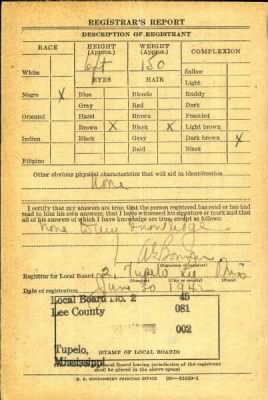 REGISTRAR'S REPORT
DESCRIPTION OF REGISTRANT
RACE HEIGHT (Approx.) WEIGHT (Approx.) COMPLEXION
White 6 ft 150 Sallow
EYES HAIR Light
Negro X Blue Blonde Ruddy
Gray Red Dark
Oriental Hazel Brown Freckled
Brown X Black X Light brown
Indian Black Gray Dark brown X
Bald Black
Filipino
Other obvious physical characteristics that will aid in identification
None
I certify that my answers are true; that the person registered has read or has had
read to him his own answers; that I have witnessed his signature or mark and that
all of his answers of which I have knowledge are true, except as follows:
None to my knowledge
Registrar for Local Board 2 Tupelo Lee Miss
Date of registration June 30 1942
Local Board No. 2 45
Lee County 081
002
Tupelo,
Mississippi
(STAMP OF LOCAL BOARD)
Local Board having jurisdiction of the registrant
shall be placed in the above space)
U. S. GOVERNMENT PRINTING OFFICE